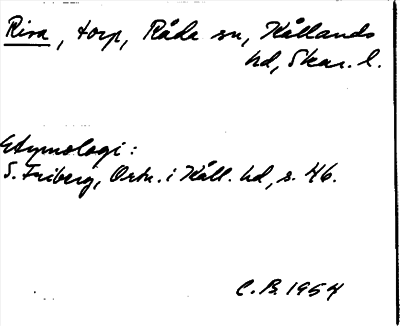 Risa, torp, Råda sn, Kållands
hd, Skar. l.
Etymologi:
S. Friberg, Ortn. i Kåll. hd, s. 46.
C. B. 1954